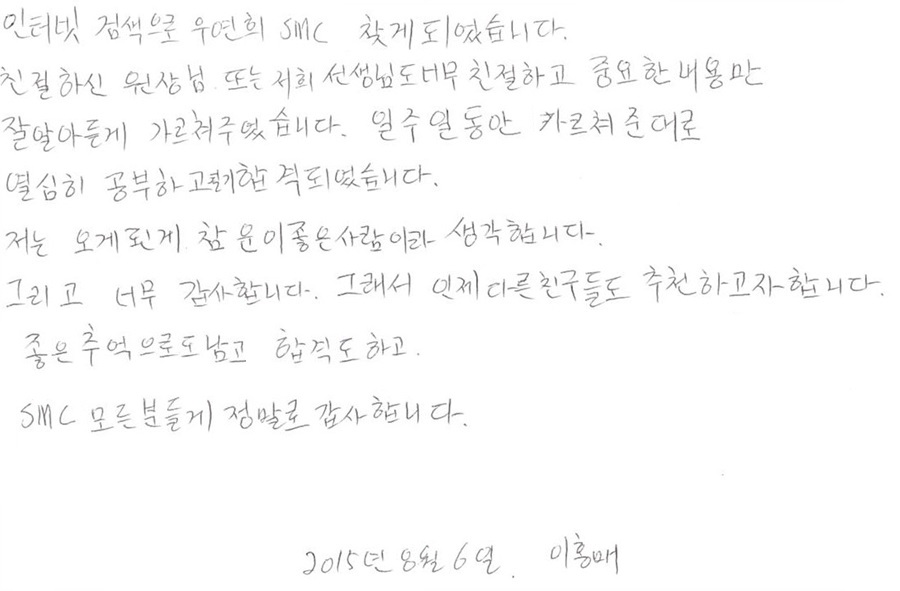 인터넷 검색으로 우연희 SMC 찾게되었습니다.
친절하신 원상님. 또는 저희 선생님도너무 친절하고 중요한내용만
잘알아듣게 가르쳐주였습니다. 일주일동안 카르쳐준대로
열심히 공부하고필기합격되였습니다.
저는 오게된게 참 운이좋은사람이라 생각합니다.
그리고 너무 감사합니다. 그래서 인제다른친구들도 추천하고자합니다.
좋은추억으로도남고 합격도하고.
SMC 모든분들게 정말로감사합니다.
2015년8월6일. 이홍매